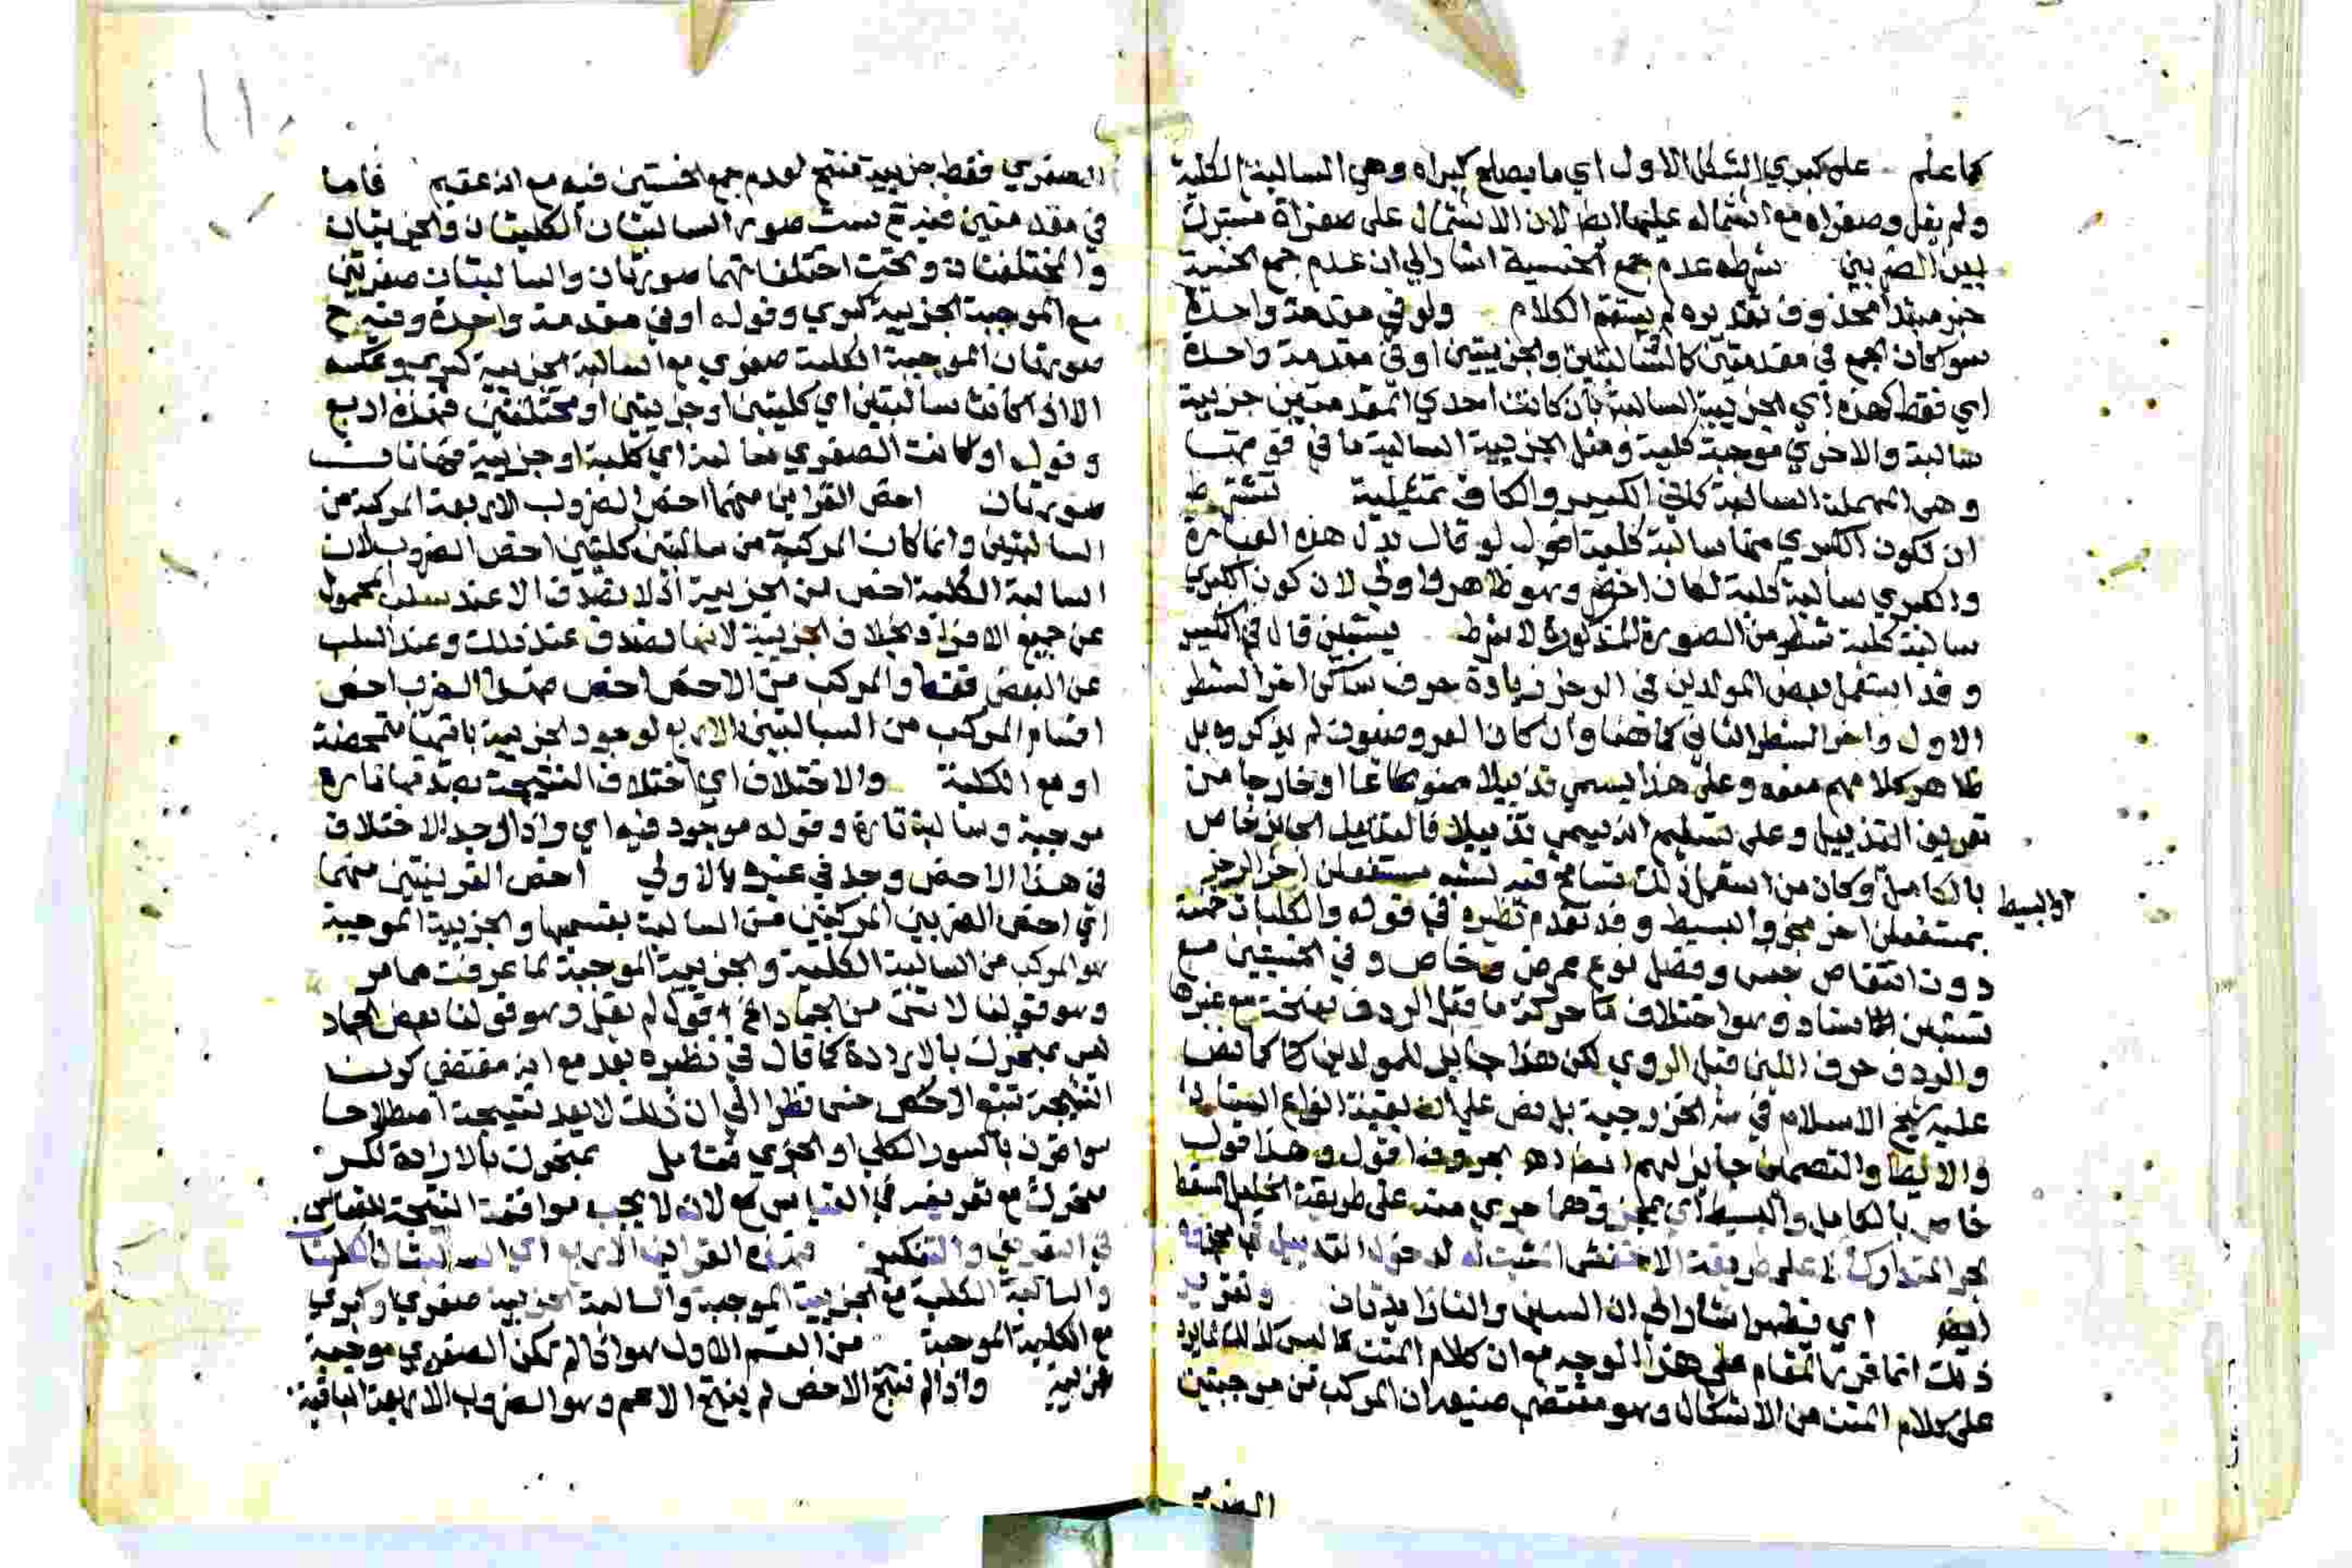 كما علم على كبري الشكل الاول اي ما يصلح كبراه وهي السالبة الكلية
ولم يقل وصغراه مع اشتماله عليها ايضا لان الاشتمال على صغراه مشترك
بين الضربين شرطه عدم جمع الخسية اشار الي ان عدم جمع الخسية
خبر مبتدا محذوف تقديره لم يستقم الكلام ولو في مقدمة واحدة
سوا كان الجمع في مقدمتين كالسالبتين والجزييتين او في مقدمة واحدة
اي فقط كهذه اي الجزيية السالبة بان كانت احدي المقدمتين جزيية
سالبة والاخري موجبة كلية ومثل الجزيية السالبة ما في قوتها
وهي المهملة السالبة كما في الكبير والكاف تمثيلية تشترط
ان تكون الكبري منها سالبة كلية اقول لو قال بدل هذه العبارة
والكبري سالبة كلية لكان اخصر وهو ظاهر واوفي لان كون الكبري
سالبة كلية شطر من الصورة المذكورة لا شرط يستبين قال في الكبير
وقد استعمل بعض المولدين في الرجز زيادة حرف ساكن اخر الشطر
الاول واخر الشطر الثاني كما هنا وان كان العروضيون لم يذكروه بل
ظاهر كلامهم منعه وعلى هذا يسمي تذييلا ممنوعا او خارجا من
تعريف التذييل وعلى تسليم انه يسمي تذييلا فالتذييل الجايز خاص
بالكامل وكان من استعمل ذلك تسامح فيه لشبه مستفعلن اخر الرجز
او البسيط
بمستفعلن اخر مجزو البسيط وقد تقدم نظيره في قوله والكليات خمسة
دون انتقاص جنس وفصل نوع عرض وخاص وفي الخستين مع
تستبين سناد وهو اختلاف حركة ما قبل الردف بفتحة مع غيرها
والردف حرف اللين قبل الروي لكن هذا جايز للمولدين كما نص
عليه شيخ الاسلام في شرح الخزرجية بل نص علي ان بقية انواع السناد
والايطا والتضمين جايز لهم ايضا اهـ بحروفه اقول وهذا قول
خاص بالكامل والبسيط اي مجزوهما جري منه على طريقة الخليل المسقط
بحر المتدارك على طريقة الاخفش المثبت له لدخول التذييل في مجزوه
ايضا اي فيظهر اشار الي ان السين والتا زايدتان وتقرير
ذلك انما قرر المقام على هذا الوجه مع ان كلام المتن ليس كذلك لما يرد
على كلام المتن من الاشكال وهو مقتضي صنيعه ان المركب من موجبتين
الصغري
الصغري فقط جزيية منتج لعدم جمع الخستين فيه مع انه عقيم فاما
في مقدمتين فيدخل ست صور السالبتان الكليتان والجزييتان
والمختلفتان وتحت اختلافهما صورتان والسالبتان صغريتين
مع الموجبة الجزيية كبري وقوله او في مقدمة واحدة وفيه
صورتان الموجبة الكلية صغري مع السالبة الجزيية كبري وعكسه
الا اذا كانتا سالبتين اي كليتين او جزييتين او مختلفتين فهذه اربع
وقوله او كانت الصغري سالبة اي كلية او جزيية فهاتان
صورتان اخص القراين منهما اخص الضروب الاربعة المركبة من
السالبتين وانما كان المركب من سالبتين كليتين اخص الضروب لان
السالبة الكلية اخص من الجزيية اذ لا تصدق الا عند سلب المحمول
عن جميع الافراد بخلاف الجزيية لانها تصدق عند ذلك وعند السلب
عن البعض فقط والمركب من الاخص اخص فهذا الضرب اخص
اقسام المركب من السالبتين الاربع لوجود الجزيية باقيها متمحضة
او مع الكلية والاختلاف اي اختلاف النتيجة بصدقها تارة
موجبة وسالبة تارة وقوله موجود فيه اي واذا وجد الاختلاف
في هذا الاخص وجد في غيره بالاولي اخص القرينتين منهما
اي اخص الضربين المركبين من السالبة بقسميها والجزيية الموجبة
هو المركب من السالبة الكلية والجزيية الموجبة لما عرفت مما مر
وهو قولنا لا شي من الجماد الخ اقول لم يقل وهو قولنا بعض الجماد
ليس بمتحرك بالارادة كما قال في نظيره بعد مع انه مقتضي كون
النتيجة تتبع الاخس نظرا الي ان ذلك لا يعد نتيجة اصطلاحا
سوا قرن بالسور الكلي او الجزي فتامل بمتحرك بالارادة لكن
متحرك مع تعريفه في القياس لانه لا يجب موافقة النتيجة للقياس
في التعريف والتنكير فهذه القراين الاربع اي السالبتان الكليتان
والسالبة الكلية مع الجزيية الموجبة والسالبة الجزيية صغري او كبري
مع الكلية الموجبة من القسم الاول هو اذا لم تكن الصغري موجبة
جزيية واذا لم ينتج الاخص لم ينتج الاعم وهو الضروب الاربعة الباقية